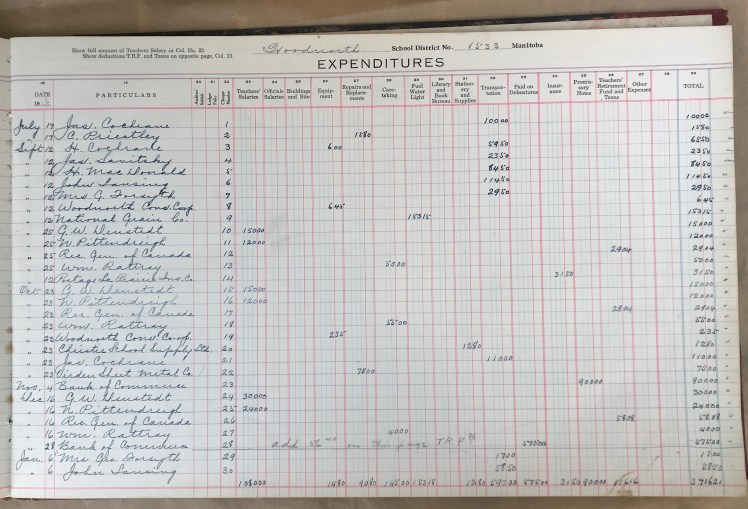 Show full amount of Teachers Salary in Col. No. 23.
Show deductions T.R.F. and Taxes on opposite page, Col. 13.
Woodnorth School District No. 1533 Manitoba
EXPENDITURES
DATE PARTICULARS Teachers' Salaries Officials Salaries Buildings and Site Equipment Repairs and Replacements Caretaking Fuel Water Light Library and Book Bureau Stationery and Supplies Transportation Paid on Debentures Insurance Promissory Notes Teachers' Retirement Fund and Taxes Other Expenses TOTAL
July 17 Jas. Cochrane 1 10000 10000
" 17 C. Priestley 2 1580 1580
Sept 12 H. Cochrane 3 600 5950 6550
" 12 Jas. Savitsky 4 2350 2350
" 12 H. MacDonald 5 8450 8450
" 12 John Lansing 6 11450 11450
" 12 Mrs. G. Forsyth 7 2950 2950
" 12 Woodnorth Cons. Coop 8 645 645
" 12 National Grain Co. 9 15315 15315
" 25 G.W. Denstedt 10 15000 15000
" 25 N. Pittendreigh 11 12000 12000
" 25 Rec. Gen. of Canada 12 2904 2904
" 25 Wm. Rattray 13 5000 5000
" 12 Portage La Prairie Ins. Co. 14 3150 3150
Oct 23 G.W. Denstedt 15 15000 15000
" 23 N. Pittendreigh 16 12000 12000
" 23 Rec. Gen. of Canada 17 2904 2904
" 23 Wm. Rattray 18 5500 5500
" 23 Woodnorth Cons. Co-op. 19 235 235
" 23 Christie School Supply Ltd. 20 1280 1280
" 23 Jas. Cochrane 21 11000 11000
" 23 Virden Sheet Metal Co. 22 7500 7500
Nov. 4 Bank of Commerce 23 90000 90000
Dec 16 G.W. Denstedt 24 30000 30000
" 16 N. Pittendreigh 25 24000 24000
" 16 Rec. Gen. of Canada 26 5808 5808
" 16 Wm. Rattray 27 4000 4000
" 28 Bank of Commerce 28 add on this page 57500 57500
Jan. 6 Mrs Geo. Forsyth 29 1700 1700
" 6 John Lansing 30 5850 5850
108000 1480 9080 14500 15315 1280 59700 57500 3150 90000 11616 371621